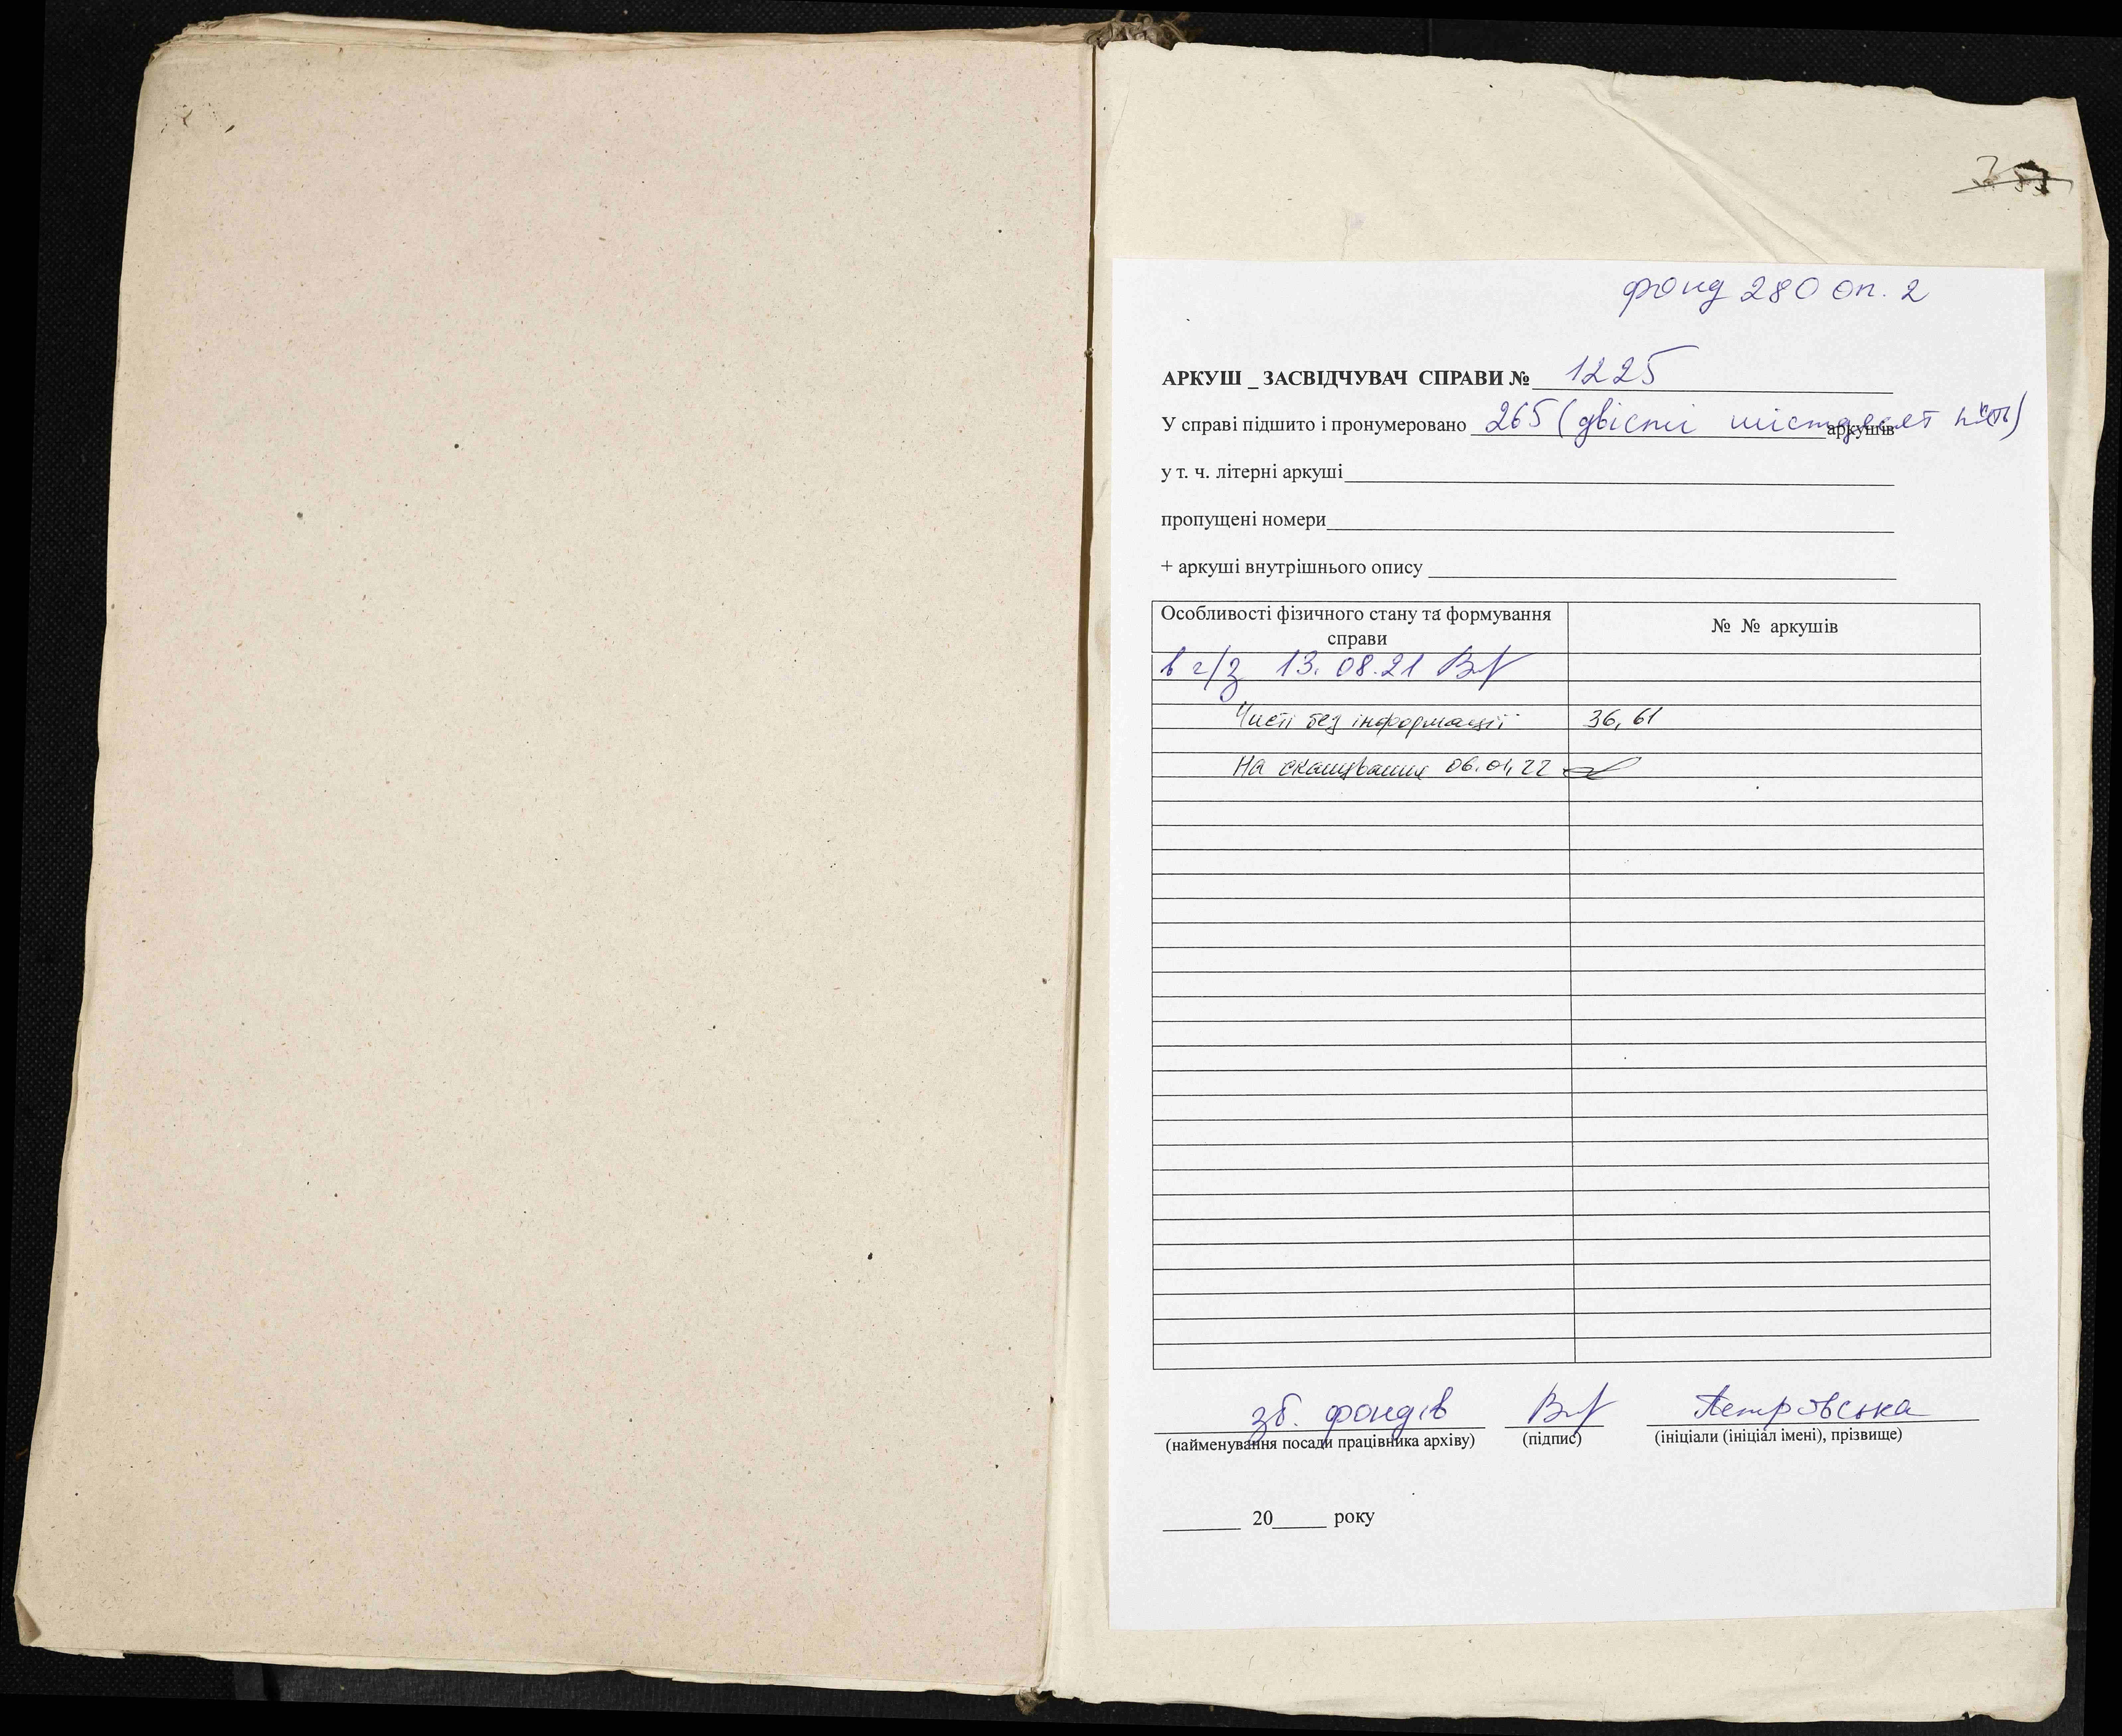 фонд 280 оп. 2
АРКУШ _ ЗАСВІДЧУВАЧ СПРАВИ № 1225
У справі підшито і пронумеровано 265 (двісті шістдесят п'ять) аркушів
у т. ч. літерні аркуші
пропущені номери
+ аркуші внутрішнього опису
Особливості фізичного стану та формування справи № № аркушів
в г/з 13.08.21
Чисті без інформації 36, 61
На сканування 06.01.22
зб. фондів Петровська
(найменування посади працівника архіву) (підпис) (ініціали (ініціал імені), прізвище)
20 року